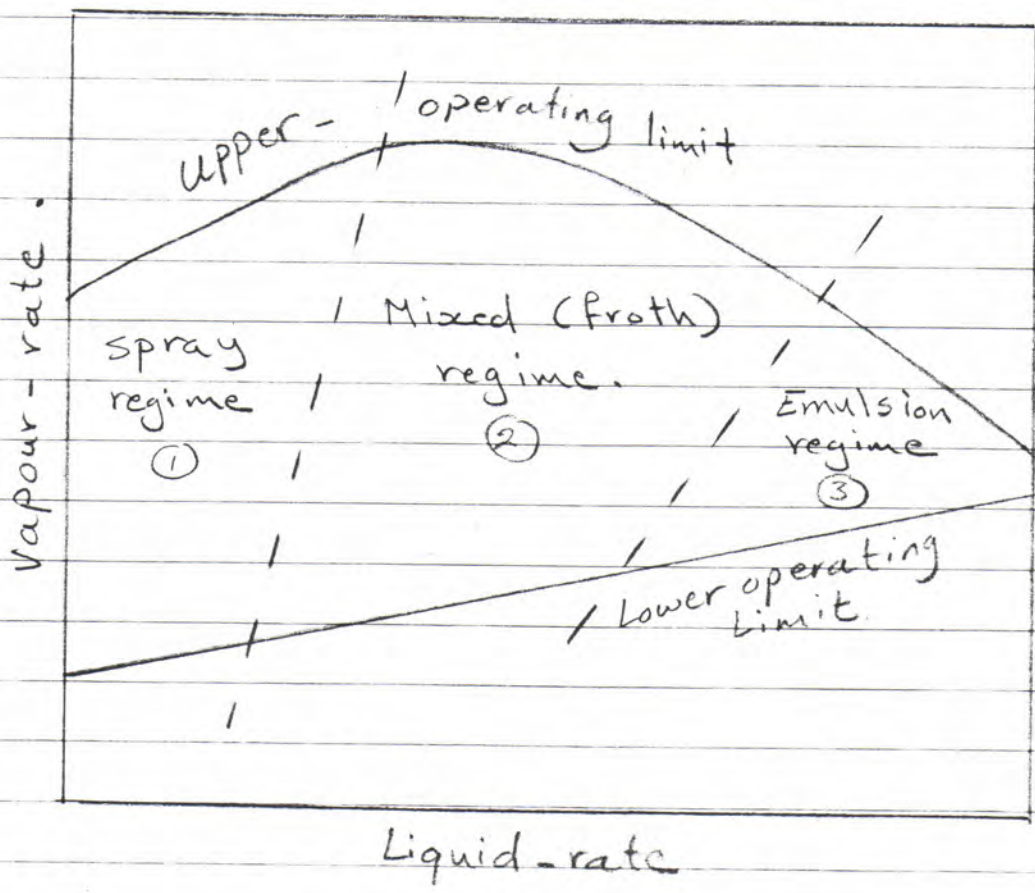 upper- operating limit
Vapour-rate.
spray
regime
①
Mixed (froth)
regime.
②
Emulsion
regime
③
Lower operating
Limit
Liquid-rate